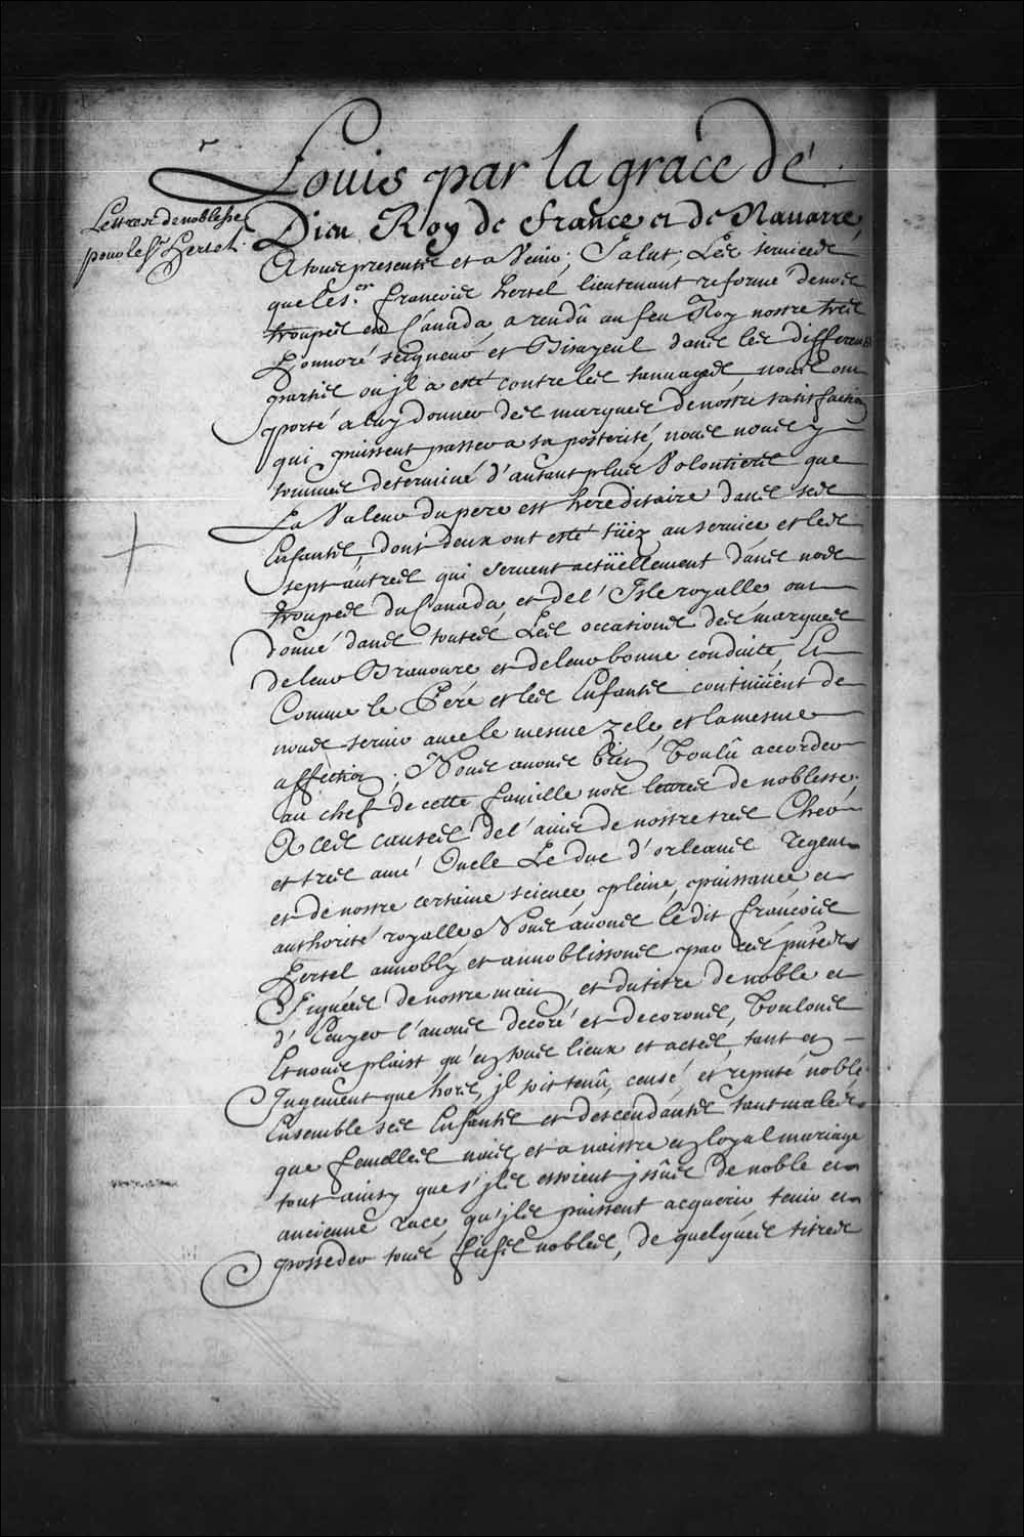 Louis par la grace de
Lettres de noblesse
pour le Sr. Hertel.
Dieu Roy de france et de Nauarre,
A tous presents et a Venir, Salut; Les seruices
que le S.r françois hertel lieutenant reformé de nos
trouppes en Canada, a rendû au feu Roy nostre tres
honnoré seigneur et Bisayeul dans les differens
partis ou jl a esté contre les sauuages, nous ont
porté a luy donner des marques de nostre satisfaction
qui puissent passer a sa posterité, nous nous y
sommes determiné d'autant plus Volontiers que
La Valeur du pere est hereditaire dans ses
Enfants, dont deux ont esté tüez au seruice et les
sept autres qui seruent actüellement dans nos
trouppes du Canada, et de l'Isle royalle ont
donné dans toutes Les occasions des marques
de leur Brauoure et de leur bonne conduite, Et
Comme le Pere et les Enfants continüent de
nous seruir auec le mesme zele, et la mesme
affection; Nous auons bien Voulû accorder
au chef de cette famille nos lettres de noblesse,
A ces causes de l'auis de nostre tres Cher
et tres amé Oncle Le Duc d'orleans Regent
et de nostre certaine science, pleine, puissance et
authorité royalle, Nous auons le dit françois
hertel annobly et annoblissons par ces pntes
Signées de nostre main, et du titre de noble et
d'Ecuyer l'auons decoré et decorons, Voulons
Et nous plaist qu'en tous lieux et actes, tant en
Jugement que hors, jl soit tenû, censé, et reputé noble
Ensemble ses Enfants et descendants tant males
que femelles nais, et a naistre en loyal mariage
tout ainsy que s'jls estoient jssûs de noble et
ancienne race, qu'jls puissent acquerir tenir et
posseder tous fiefs nobles, de quelques titres